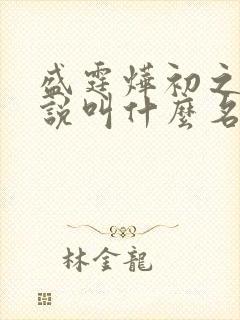 盛霆燁初之
說叫什麼名
林金龍